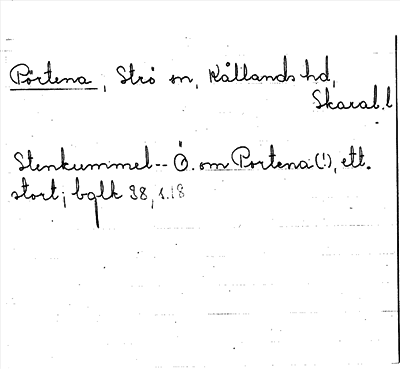 Pörtena, Strö sn, Kållands hd,
Skarab. l
Stenkummel -- Ö. om Portena (!), ett.
stort; bglk 38, s.18